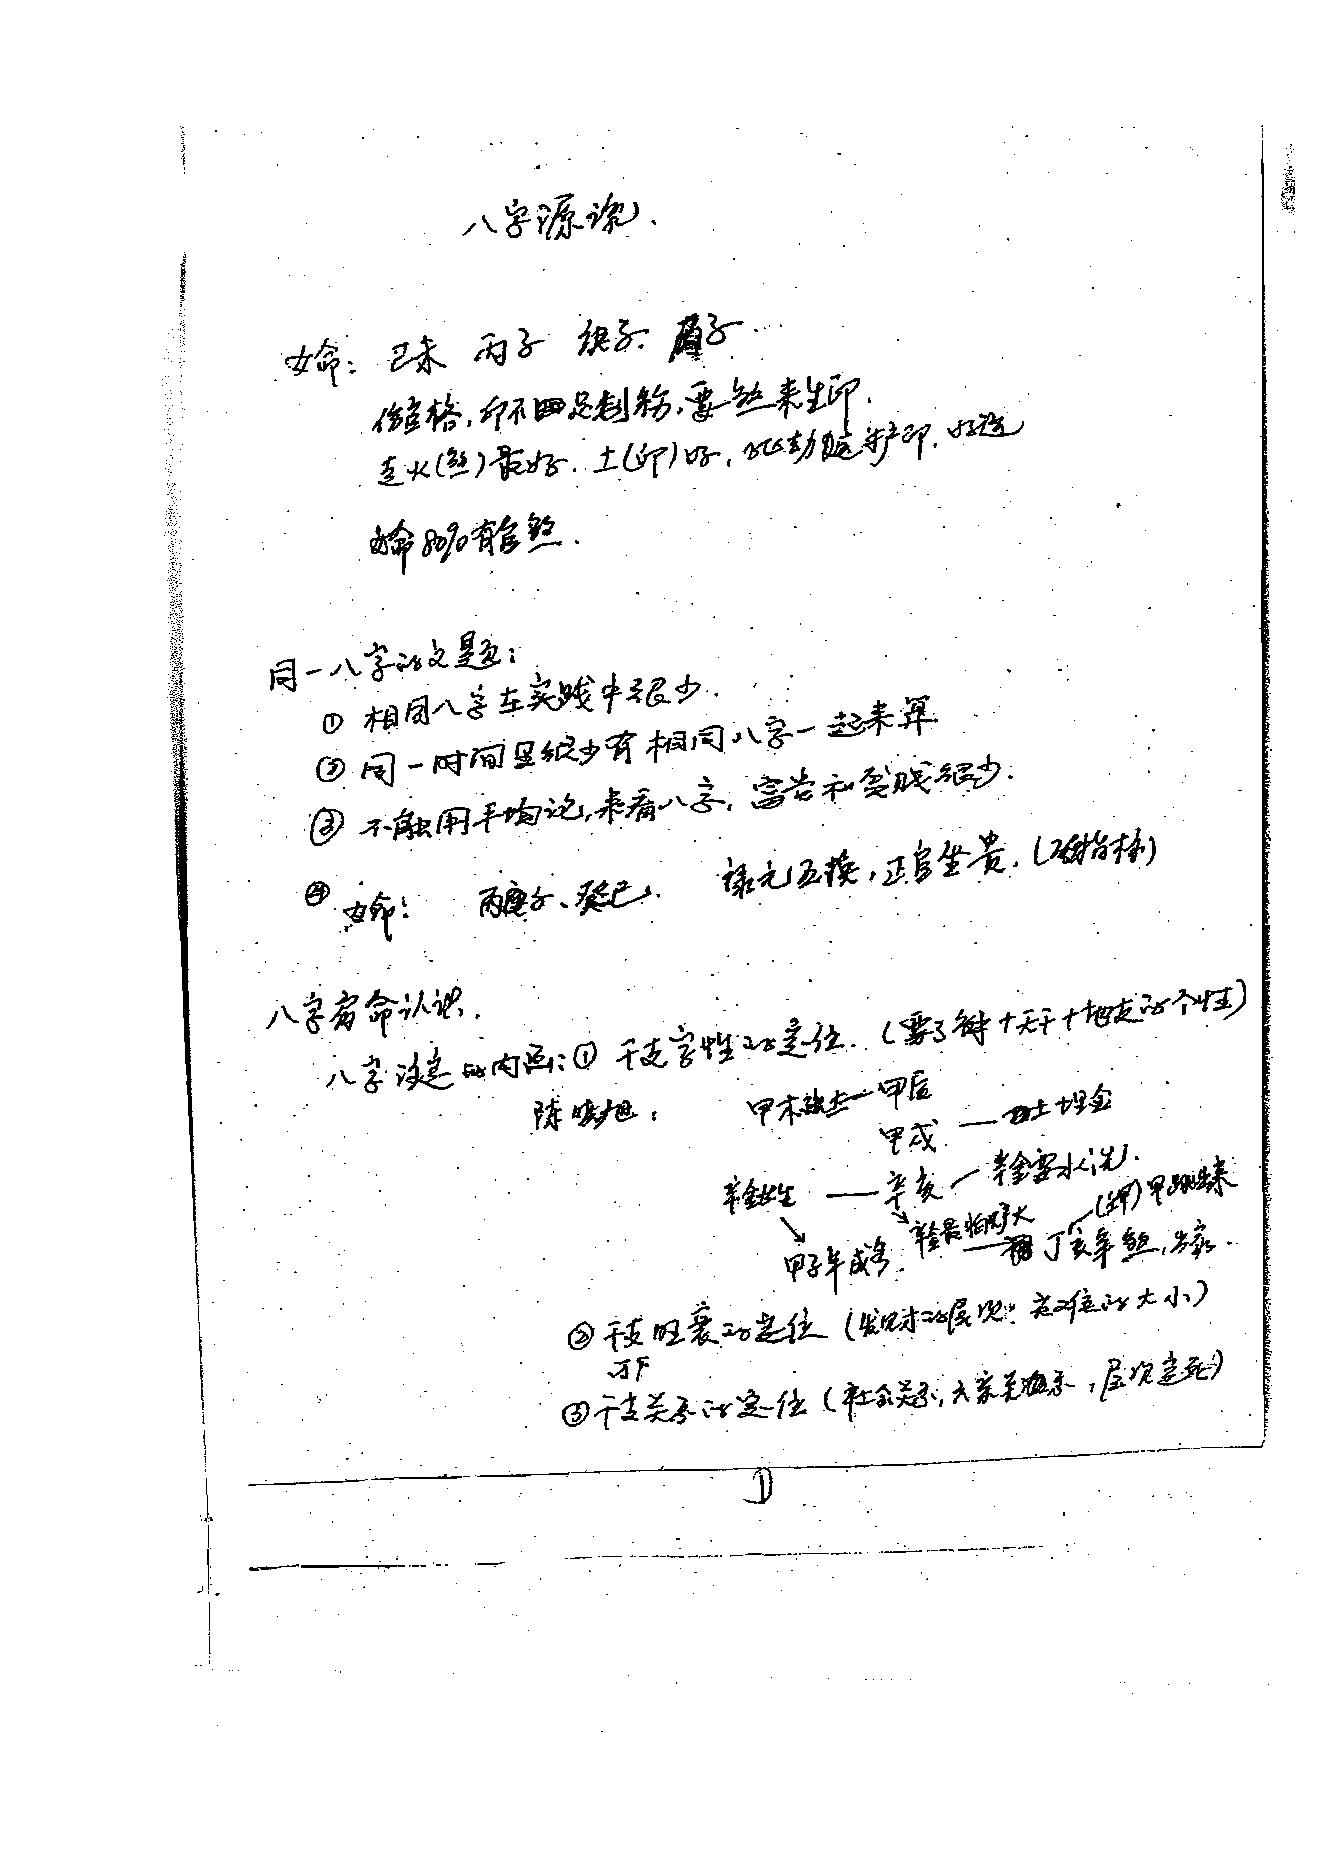 八字源说.
女命: 己未 丙子 庚子 子
伤官格,印不足制伤,要煞来生印.
走火(煞)最好.土(印)好,
女命80%有官煞.
同一八字的问题:
① 相同八字在实践中很少.
② 同一时间里很少有相同八字一起来算
③ 不能用平均论,来看八字,富贵和贫贱很少.
④ 女命: 丙子、癸巳. 禄元互换,正官坐贵.
八字宿命认识.
八字决定的内函:① 干支字性的定位.(要了解十天干+地支的个性)
陈晓旭: 甲木 — 甲辰
甲戌 — 土埋金
辛金 — 辛亥 — 辛金要水洗.
甲子年成名. 辛金最怕 丁亥年 煞,出家.
② 干支旺衰的定位( 的层次: 的大小)
③ 干支关系的定位(社会关系,六亲关系,层次定死)
①